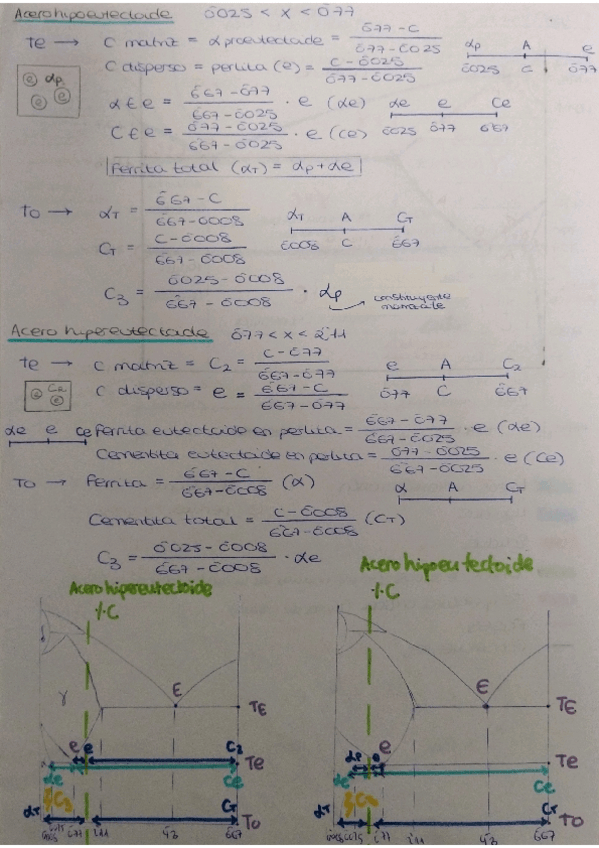 Acero hipoeutectoide 0'025 < x < 0'77
Te → C matriz = α proeutectoide = (0'77 - C) / (0'77 - 0'025)
αp A e
0'025 C 0'77
C disperso = perlita (e) = (C - 0'025) / (0'77 - 0'025)
e αp
e e
α € e = (6'67 - 0'77) / (6'67 - 0'025) · e (αe)
αe e Ce
0'025 0'77 6'67
C € e = (0'77 - 0'025) / (6'67 - 0'025) · e (Ce)
Ferrita total (αT) = αp + αe
To → αT = (6'67 - C) / (6'67 - 0'008)
αT A CT
0'008 C 6'67
CT = (C - 0'008) / (6'67 - 0'008)
C3 = (0'025 - 0'008) / (6'67 - 0'008) · αp
constituyente
Acero hipereutectoide 0'77 < x < 2'11
Te → C matriz = C2 = (C - 0'77) / (6'67 - 0'77)
e A C2
0'77 C 6'67
C disperso = e = (6'67 - C) / (6'67 - 0'77)
C2
e
αe e Ce
Ferrita eutectoide en perlita = (6'67 - 0'77) / (6'67 - 0'025) · e (αe)
Cementita eutectoide en perlita = (0'77 - 0'025) / (6'67 - 0'025) · e (Ce)
To → Ferrita = (6'67 - C) / (6'67 - 0'008) (α)
α A CT
Cementita total = (C - 0'008) / (6'67 - 0'008) (CT)
C3 = (0'025 - 0'008) / (6'67 - 0'008) · αe
Acero hipereutectoide
% C
γ
E
TE
e e C2
Te
αe Ce
C3
αT CT
To
0'77 2'11 4'3 6'67
Acero hipoeutectoide
% C
E
TE
e
Te
αe Ce
αT CT
To
0'77 2'11 4'3 6'67